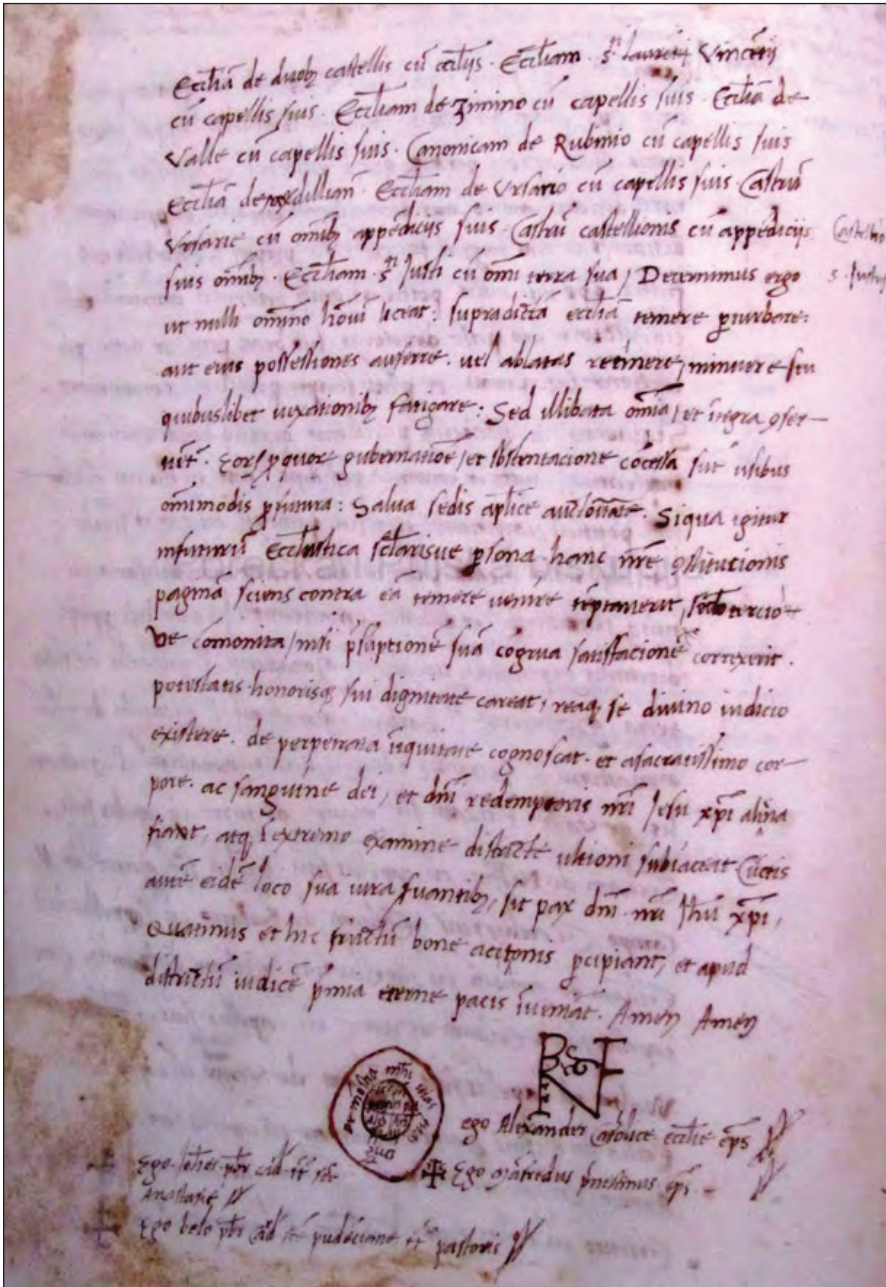 Eccl̄iā de duob₃ castellis cū eccl̄iis · Eccl̄iam · s̄ti laurētij Vincētij
cū capellis suis · Eccl̄iam de Zimino cū capellis suis · Eccl̄iā de
Valle cū capellis suis · Canonicam de Rubinio cū capellis suis
Eccl̄iā de · Eccl̄iam de Vrsario cū capellis suis · Castrū
Vrsarie cū omīb₃ appēdiciis suis · Castrū castellionis cū appēdiciis
Castellio
suis omīb₃ · Eccl̄iam · s̄ti Justi cū om̄i terra sua / Decernimus ergo
s · Justus
ut nulli om̄ino hoī̄ liceat : supradictā eccl̄iā temere p̱turbare :
aut eius possessiones auferre · uel ablatas retinere / minuere · seu
quibuslibet uexationib₃ fatigare : Sed illibata om̄ia / et ītegra ꝯser—
uēt · eor₄ p̱ quor₄ gubernatiōe / et substentacione cōcessa sūt usibus
om̄imodis p̄futura : Salua sedis apl̄ice auctoritate · Siqua igitur
infuturū Eccl̄iastica sēclarisue p̱sona · hanc nr̄e ꝯstitucionis
paginā sciens contra eā temere uenire teptauerit / sēdo tercio
ve comonita / nisi p̄sūptionē suā cogrua satisfacionē correxerit ·
potestatis · honorisq₃ sui dignitate careat / reaq₃ se diuino iudicio
existere · de perpetrata īiquitate cognoscat · et asacratissimo cor—
pore · ac sanguine dei / et dn̄i redemptoris nr̄i Jesu xp̄i aliēa
fiant / atq₃ ī extremo examine districte ultioni subiaceat Cūctis
autē eidē loco sua iura suantib₃ / sit pax dn̄i · nr̄i Jhū xp̄i /
Quatinus et hic fructū bone actionis p̱cipiant / et apud
districtū iudicē p̄mia eterne pacis īueniāt · Amen Amen
ego Alexander Catolice · eccl̄ie · ep̄s
Ego · Joħes · pb̄r cād · tt̄ · sc̄e
✠ Ego Māfredus p̄nestinus ep̄s
Anastasie
✠ Ego boso pb̄r cād sc̄e pudēciane tt̄ pastoris